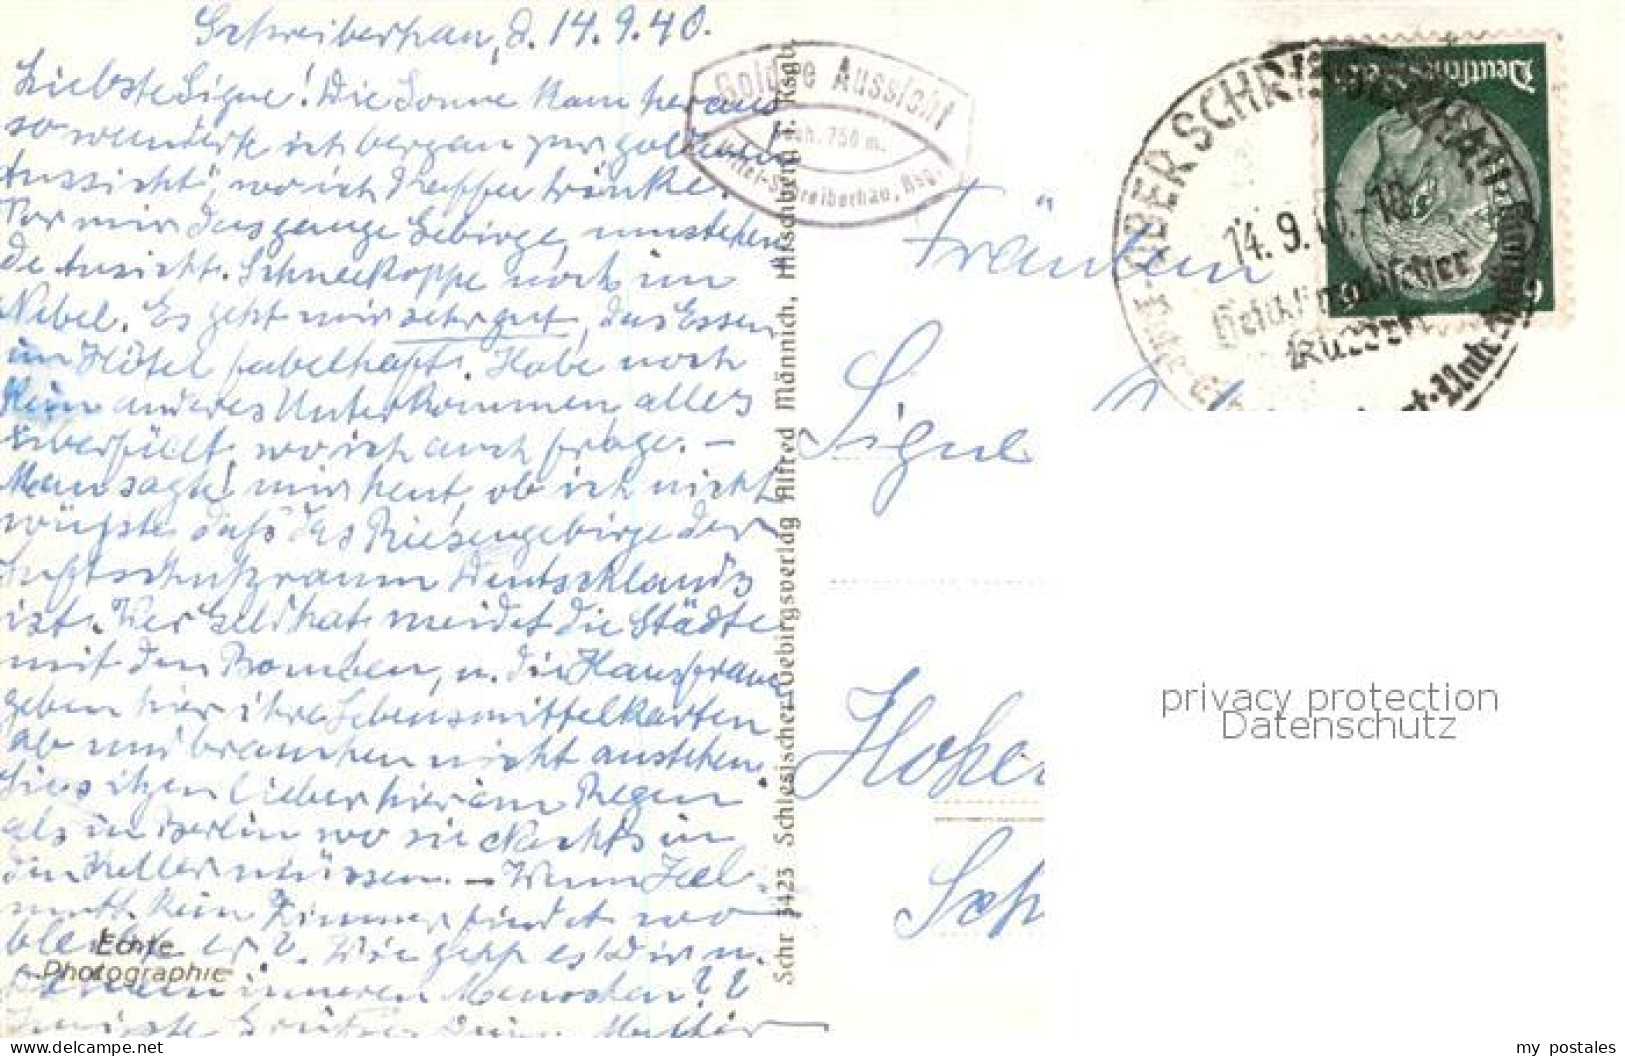 Schreiberhau, d. 14.9.40.
Liebste Signe! Die Sonne kam heraus
so wanderte ich bergan zur goldenen
Aussicht, wo ich Kaffee trinke.
Vor mir das ganze Gebirge, umstehen
de Ansicht. Schneekoppe noch im
Nebel. Es geht mir sehr gut, das Essen
im Hôtel fabelhaft. Habe noch
kein anderes Unterkommen alles
überfüllt, wo ich auch frage. –
Man sagte mir heut, ob ich nicht
wüsste dass das Riesengebirge der
Luftschutzraum Deutschlands
ist. Wer Geld hat meidet die Städte
mit den Bomben, u. die Hausfrauen
geben hier ihre Lebensmittelkarten
ab und brauchen nicht anstehen.
Sie sitzen lieber hier im Regen
als in Berlin wo sie Nachts in
den Keller müssen. – Wenn Hel-
muth kein Zimmer findet wo
bleibt er? Wie geht es Dir u.
inneren Menschen??
Mutter
Echte
Photographie
Schr 3423 Schlesischer Gebirgsverlag Alfred Männich, Hirschberg i. Rsgb.
Goldne Aussicht
Seeh. 750 m.
Mittel-Schreiberhau, Rsg.
Deutsches Reich
6
OBER SCHREIBERHAU
14.9. -18
Heilklimatischer
Kurort
Fräulein
Signe
Sch
privacy protection
Datenschutz
my postales